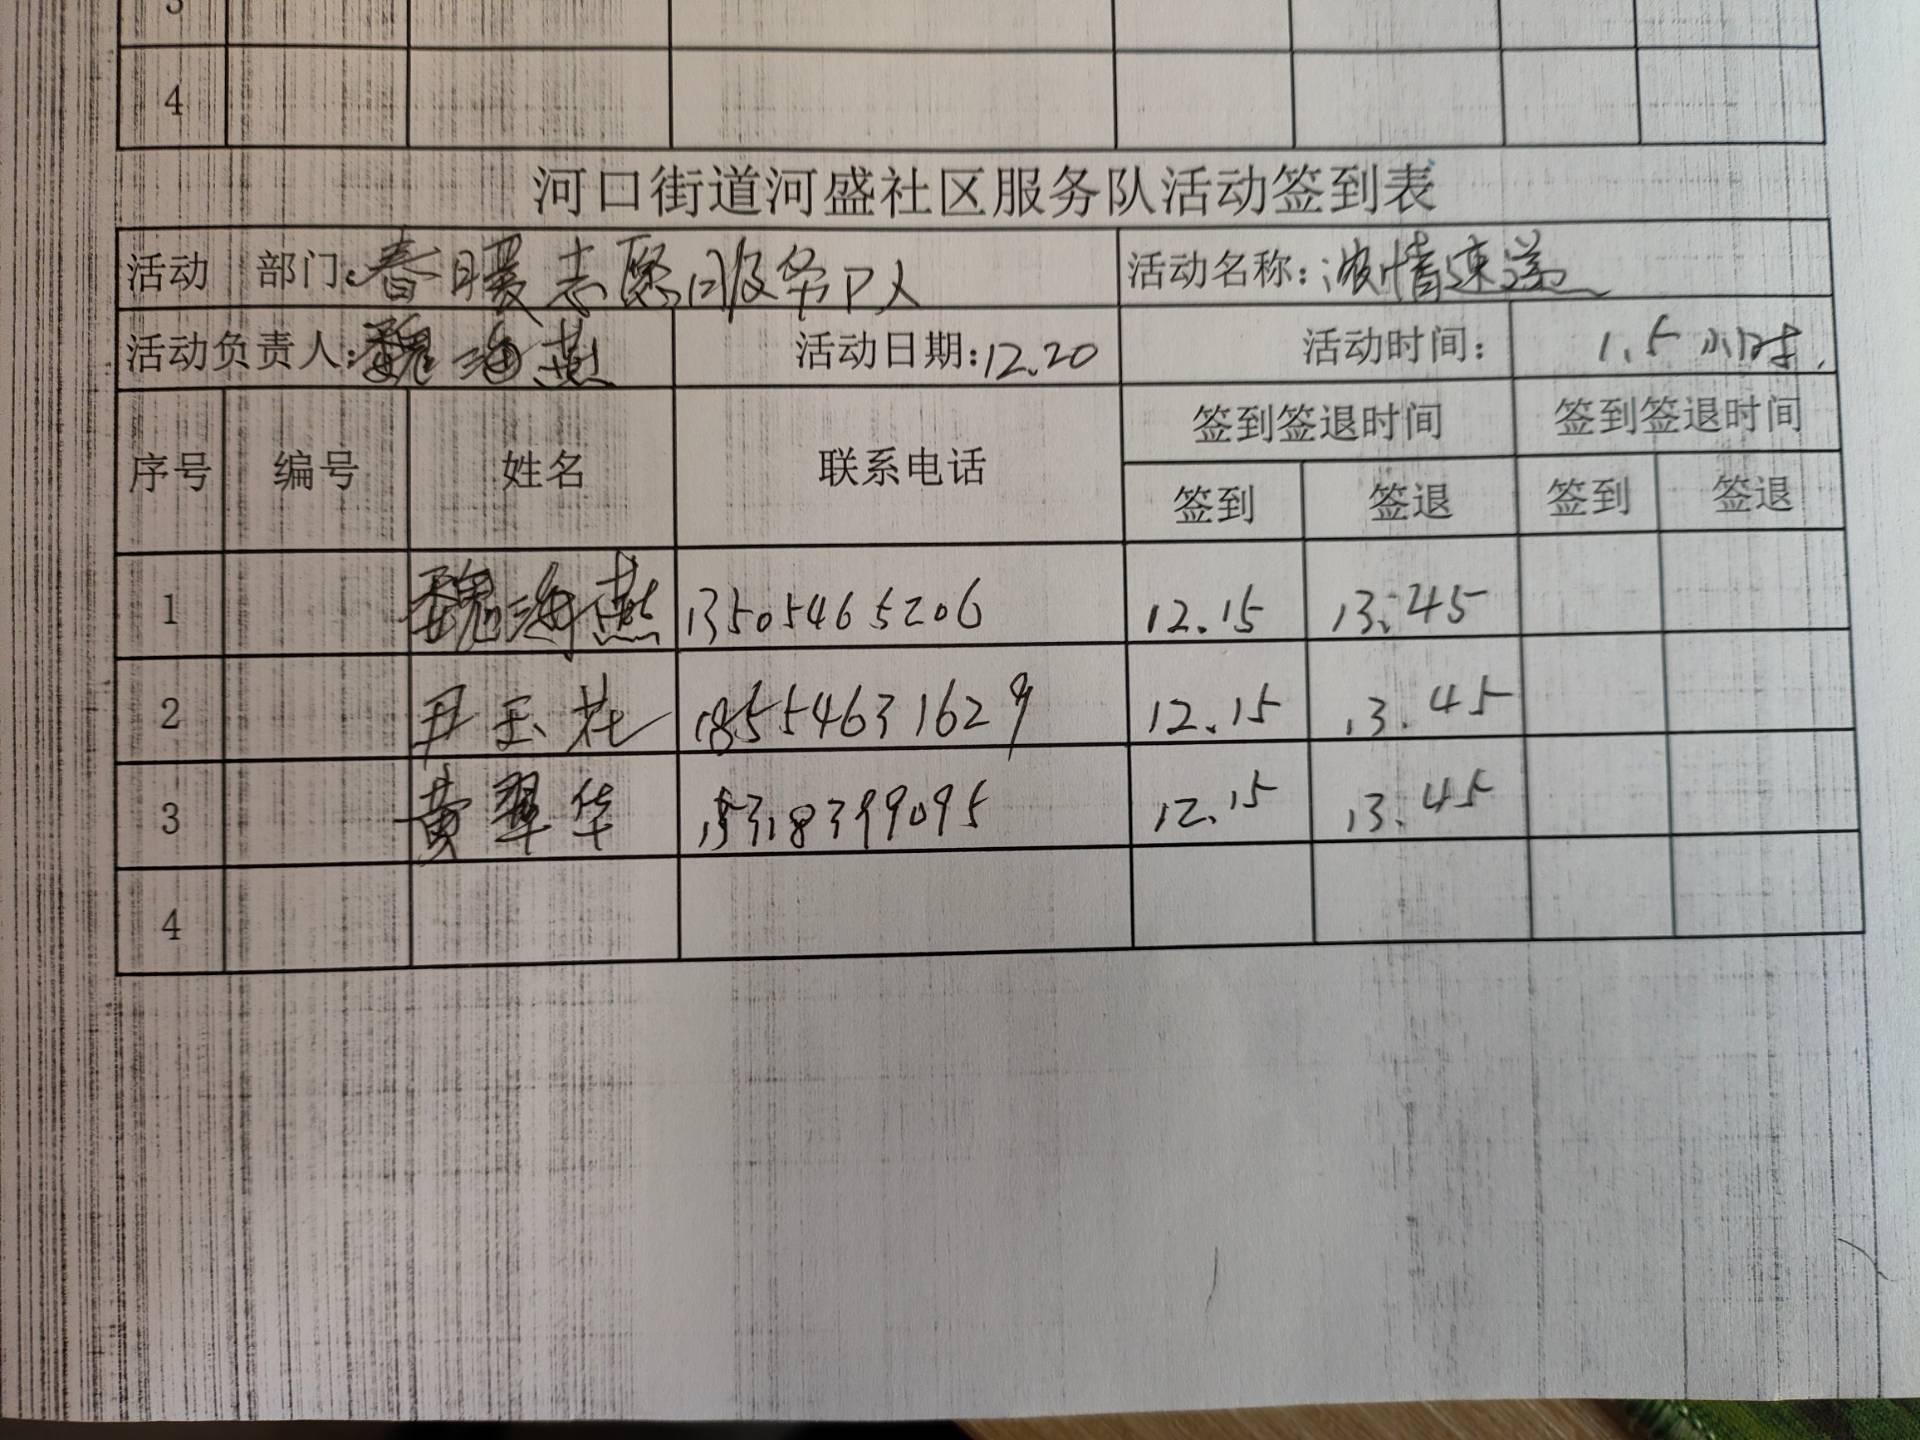 3
4
河口街道河盛社区服务队活动签到表
活动 部门:春暖志愿服务队 活动名称:浓情速递
活动负责人:魏海燕 活动日期:12.20 活动时间: 1.5小时.
序号 编号 姓名 联系电话 签到签退时间 签到签退时间
签到 签退 签到 签退
1 魏海燕 13505465206 12.15 13:45
2 尹玉花 12.15 13.45
3 黄翠华 15318399095 12.15 13.45
4